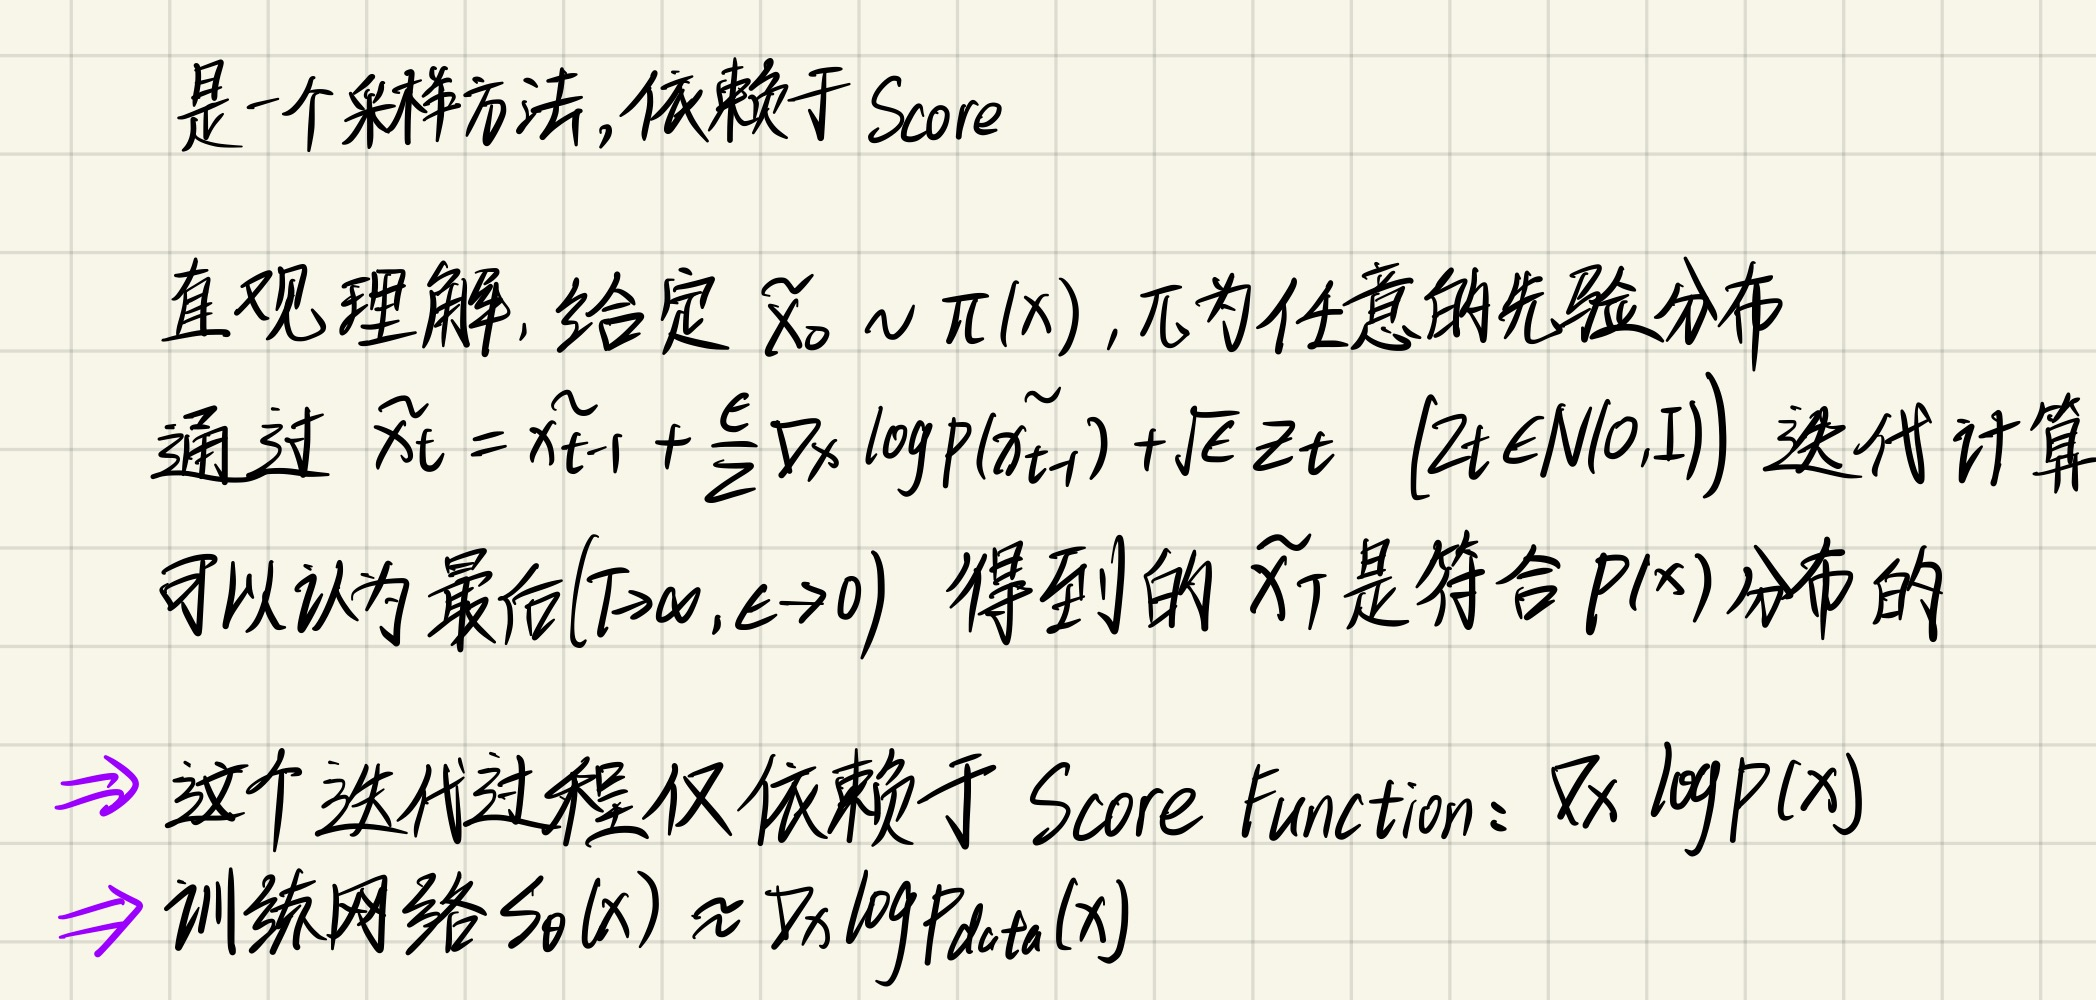 是一个采样方法,依赖于 Score
直观理解, 给定 x̃₀ ~ π(x), π为任意的先验分布
通过 x̃ₜ = x̃ₜ₋₁ + ε/2 ∇ₓ log p(x̃ₜ₋₁) + √ε zₜ (zₜ ∈ N(0,I)) 迭代计算
可以认为最后(T→∞, ε→0) 得到的 x̃_T 是符合 p(x) 分布的
⇒ 这个迭代过程仅依赖于 Score Function: ∇ₓ log p(x)
⇒ 训练网络 S_θ(x) ≈ ∇ₓ log p_data(x)